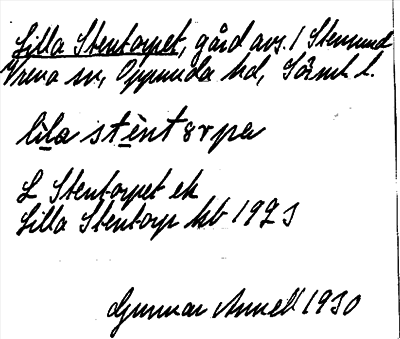 Lilla Stentorpet, gård avs. / Stensund
Vrena sn, Oppunda hd, Södml. l.
lìla stèntɜrpa
L Stentorpet ek
Lilla Stentorp kb 1923
Gunnar Annell 1930